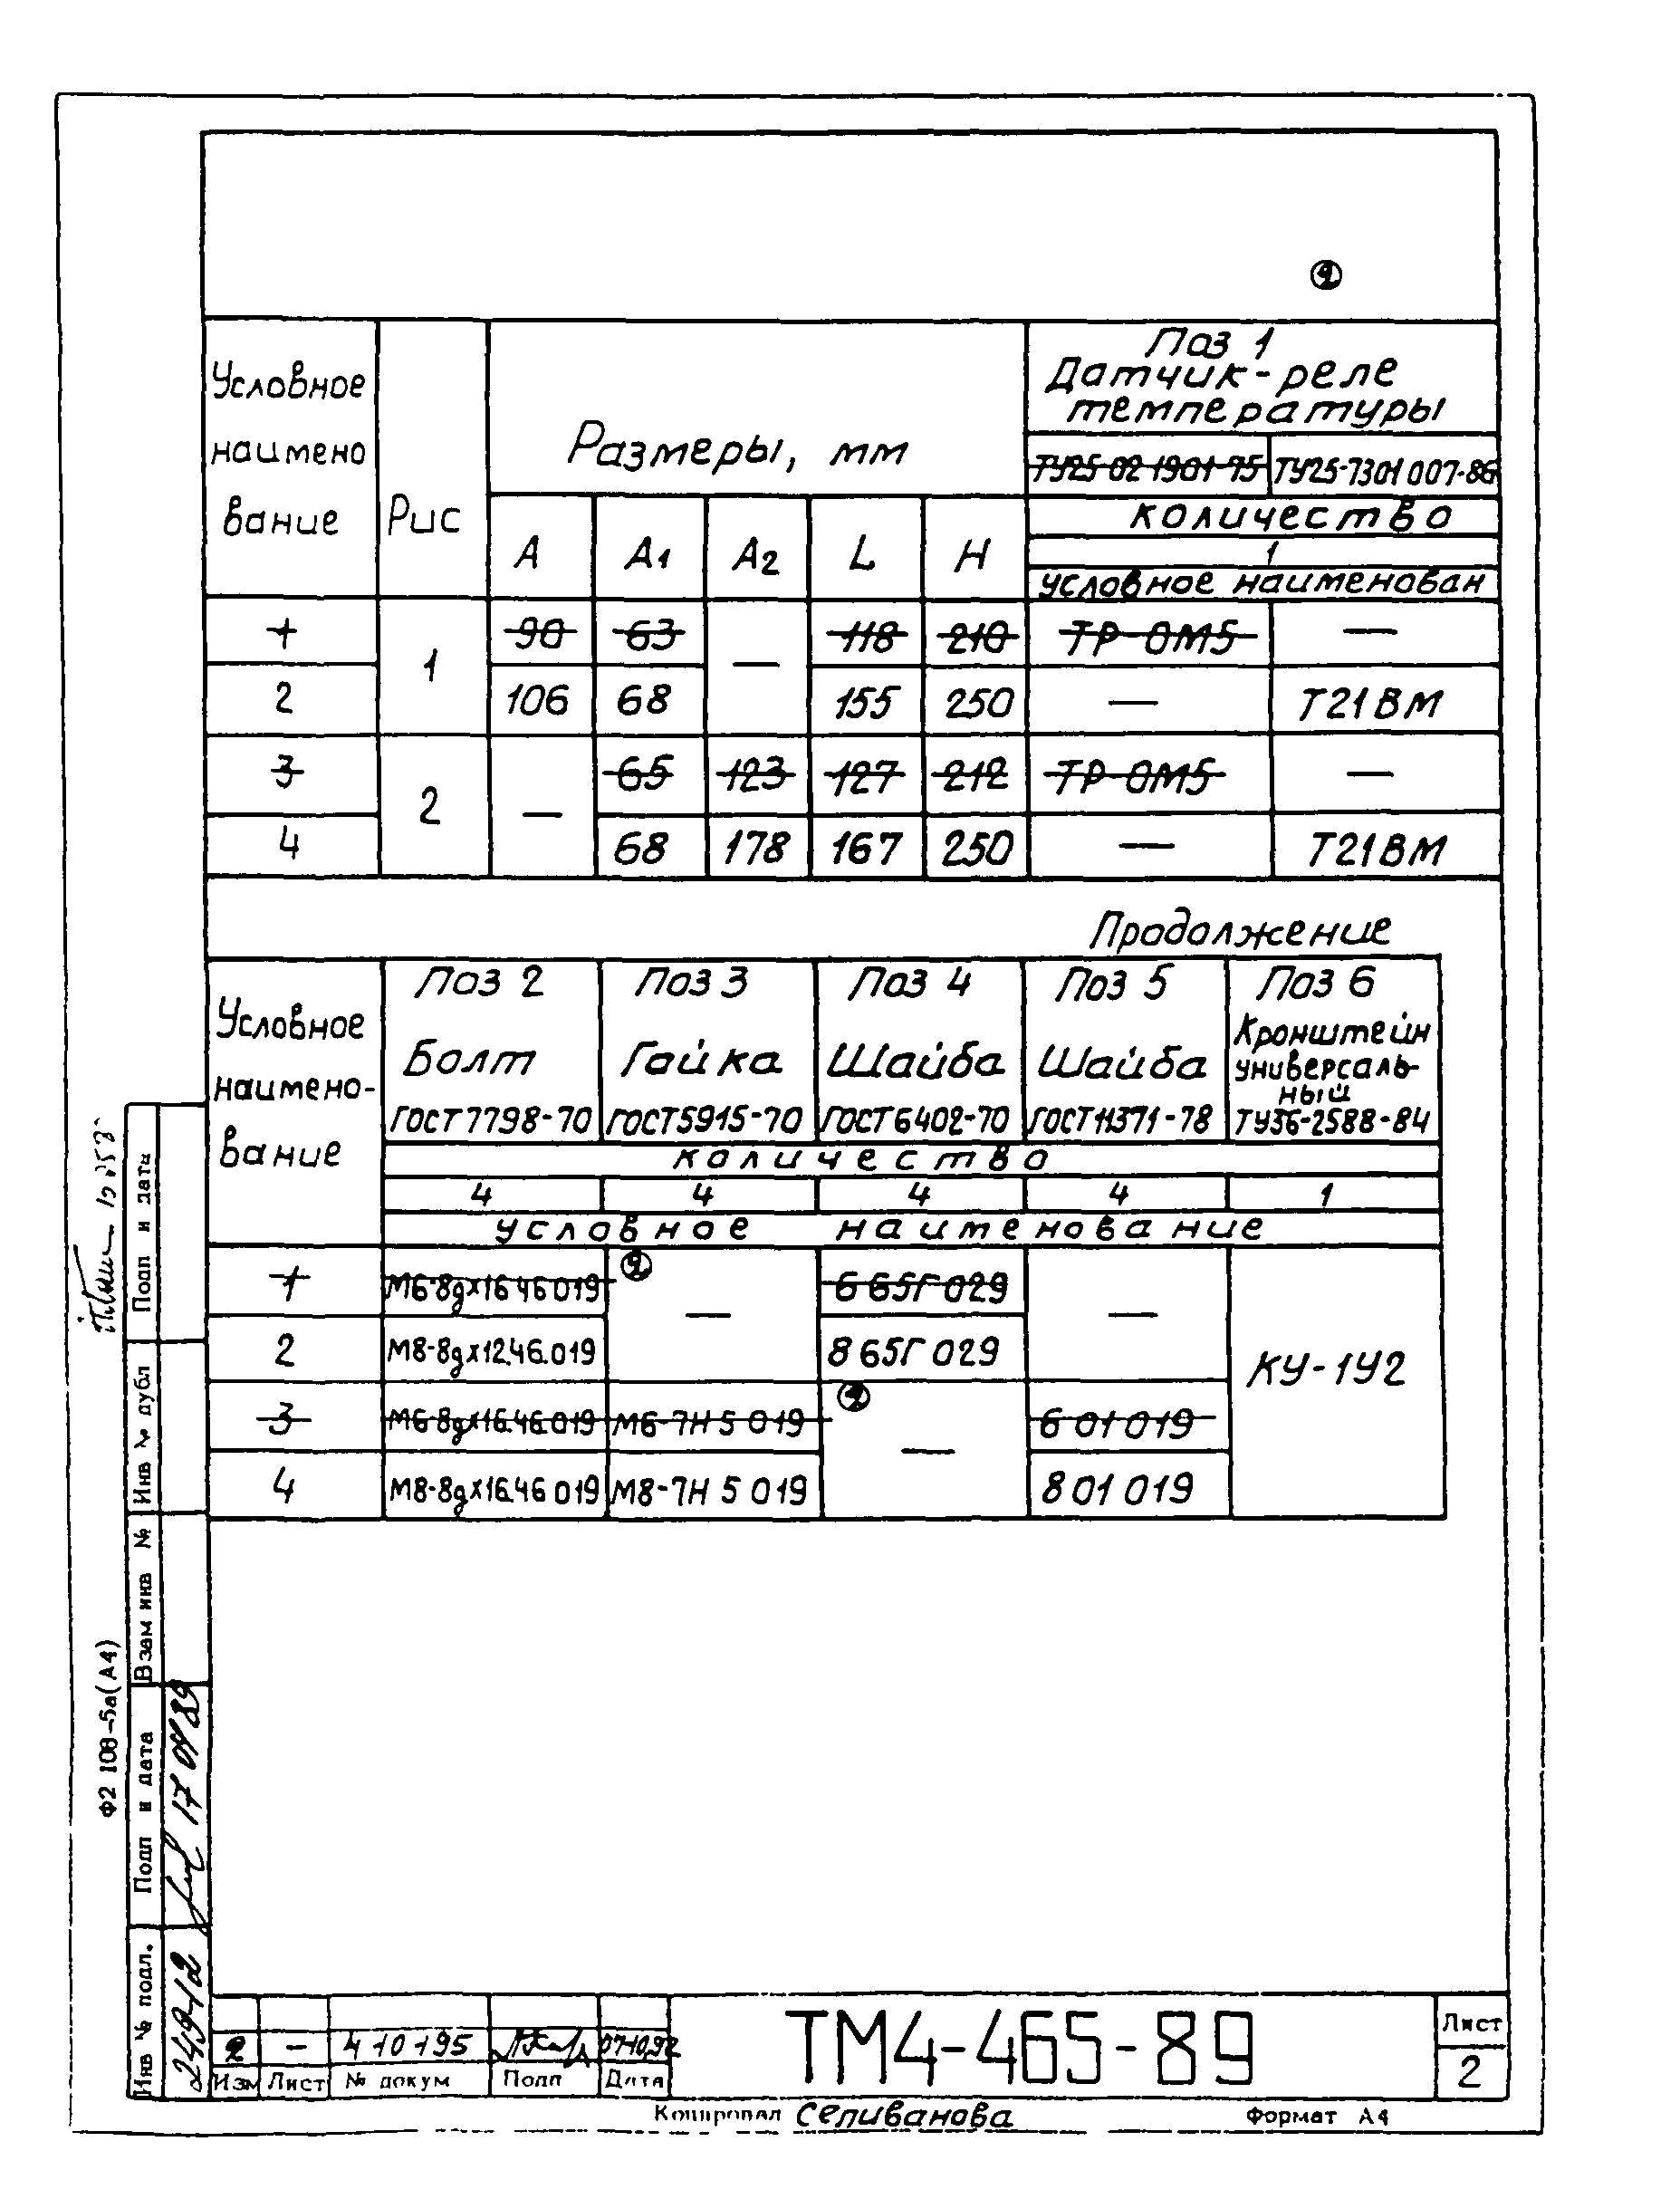 2
Условное
наимено
вание
Рис
Размеры, мм
Поз 1
Датчик-реле
температуры
ТУ25 02 1901-75 ТУ25-7301 007-86
количество
1
условное наименован
А А1 А2 L Н
1 1 90 63 — 118 210 ТР-ОМ5 —
2 106 68 155 250 — Т21ВМ
3 2 — 65 123 127 212 ТР-ОМ5 —
4 68 178 167 250 — Т21ВМ
Продолжение
Условное
наимено-
вание
Поз 2 Поз 3 Поз 4 Поз 5 Поз 6
Болт Гайка Шайба Шайба Кронштейн
универсаль-
ный
ГОСТ7798-70 ГОСТ5915-70 ГОСТ6402-70 ГОСТ11371-78 ТУ36-2588-84
количество
4 4 4 4 1
условное наименование
1 М6-8gх16.46 019 2 — 6 65Г 029 —
2 М8-8gх12.46.019 8 65Г 029 КУ-1У2
3 М6-8gх16.46.019 М6-7Н 5 019 2 — 6 01 019
4 М8-8gх16.46 019 М8-7Н 5 019 8 01 019
Подп и дата
Инв № дубл
Взам инв №
Подп и дата
17 04 89
Инв № подл.
Ф2 108-5а(А4)
2 — 4 10 195 07.10.92
Изм Лист № докум Подп Дата
ТМ4-465-89
Лист
2
Копировал Селиванова Формат А4